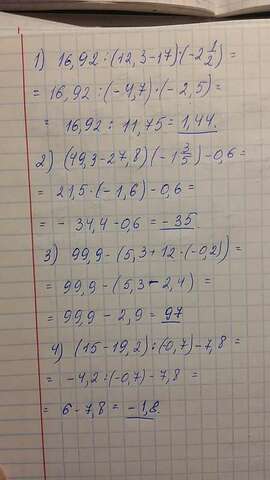 1) 16,92 : (12,3-17)·(-2 1/2) =
= 16,92 : (-4,7)·(-2,5) =
= 16,92 : 11,75 = 1,44.
2) (49,3-27,8)·(-1 3/5)-0,6 =
= 21,5·(-1,6)-0,6 =
= - 34,4-0,6 = -35
3) 99,9 - (5,3+12·(-0,2)) =
= 99,9 - (5,3-2,4) =
= 99,9 - 2,9 = 97
4) (15-19,2):(-0,7)-7,8 =
= -4,2:(-0,7)-7,8 =
= 6-7,8 = -1,8.